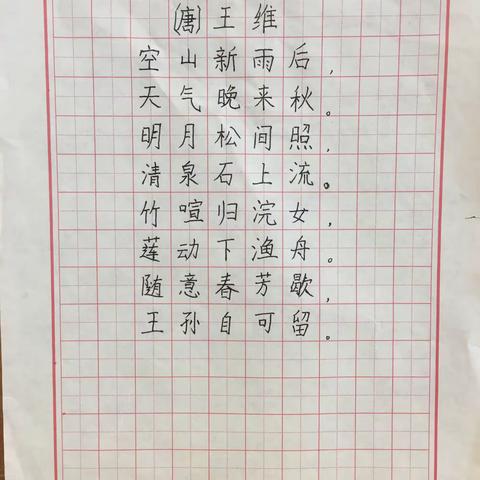 (唐)王维
空山新雨后,
天气晚来秋。
明月松间照,
清泉石上流。
竹喧归浣女,
莲动下渔舟。
随意春芳歇,
王孙自可留。